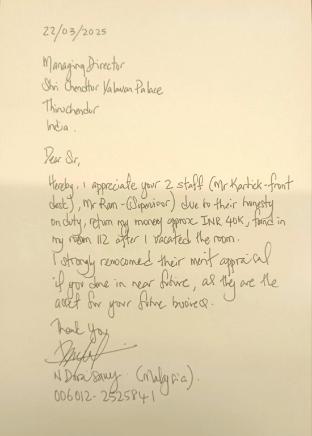 22/03/2025
Managing Director
Shri Chendhur Valavan Palace
Thiruchendur
India.
Dear Sir,
Hereby, I appreciate your 2 staff (Mr Kartick-front
desk), Mr Ram-(Supervisor) due to their honesty
on duty, return my money approx INR 40K, found in
my room 112 after I vacated the room.
I strongly recomend their merit appraisal
if you done in near future, as they are the
asset for your future business.
Thank You
(Malaysia).
006012-2525841